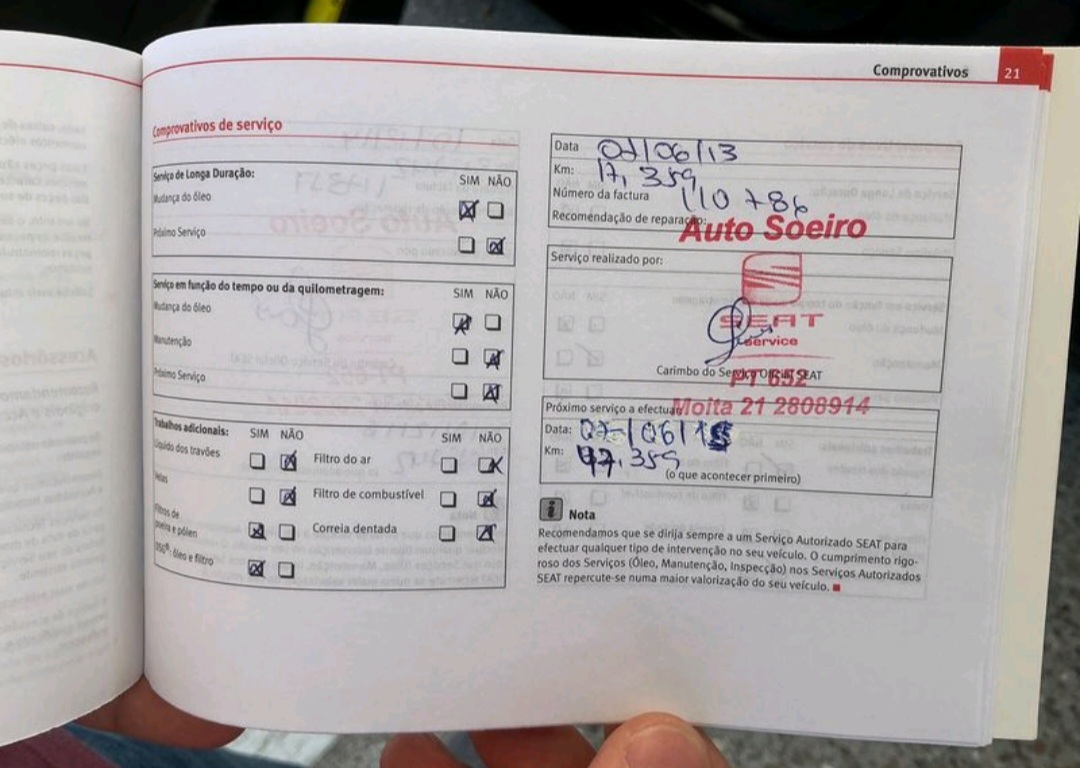 Comprovativos 21
Comprovativos de serviço
Serviço de Longa Duração:
SIM NÃO
Mudança do óleo
Próximo Serviço
Serviço em função do tempo ou da quilometragem:
SIM NÃO
Mudança do óleo
Manutenção
Próximo Serviço
Trabalhos adicionais:
SIM NÃO SIM NÃO
Líquido dos travões Filtro do ar
Velas Filtro de combustível
Filtros de
poeira e pólen Correia dentada
DSG®: óleo e filtro
Data 07/06/13
Km: 17,359
Número da factura 110786
Recomendação de reparação:
Auto Soeiro
Serviço realizado por:
SEAT
Service
Carimbo do Serviço Oficial SEAT
PT 652
Moita 21 2808914
Próximo serviço a efectuar
Data: 07/06/15
Km: 47.359
(o que acontecer primeiro)
i Nota
Recomendamos que se dirija sempre a um Serviço Autorizado SEAT para
efectuar qualquer tipo de intervenção no seu veículo. O cumprimento rigo-
roso dos Serviços (Óleo, Manutenção, Inspecção) nos Serviços Autorizados
SEAT repercute-se numa maior valorização do seu veículo.